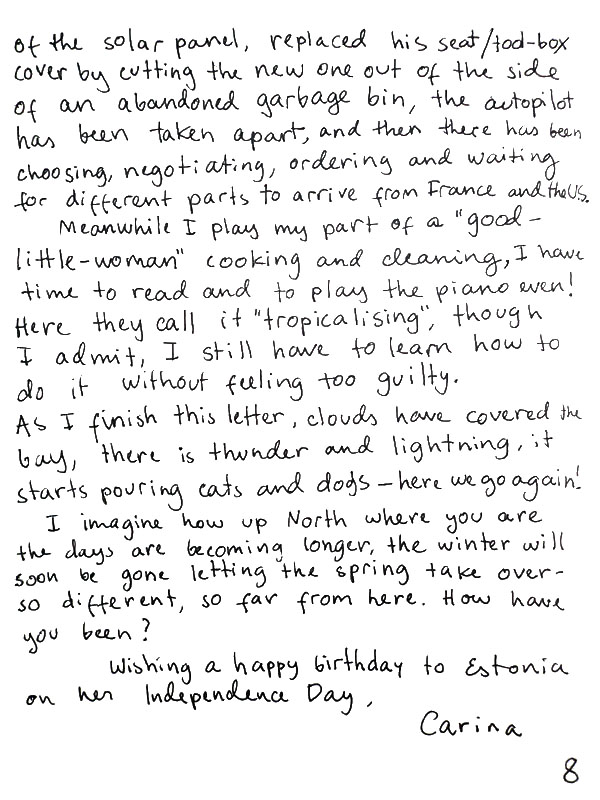 of the solar panel, replaced his seat/tool-box
cover by cutting the new one out of the side
of an abandoned garbage bin, the autopilot
has been taken apart, and then there has been
choosing, negotiating, ordering and waiting
for different parts to arrive from France and the U.S.
Meanwhile I play my part of a "good-
little-woman" cooking and cleaning, I have
time to read and to play the piano even!
Here they call it "tropicalising", though
I admit, I still have to learn how to
do it without feeling too guilty.
As I finish this letter, clouds have covered the
bay, there is thunder and lightning, it
starts pouring cats and dogs – here we go again!
I imagine how up North where you are
the days are becoming longer, the winter will
soon be gone letting the spring take over –
so different, so far from here. How have
you been?
Wishing a happy birthday to Estonia
on her Independence Day,
Carina
8